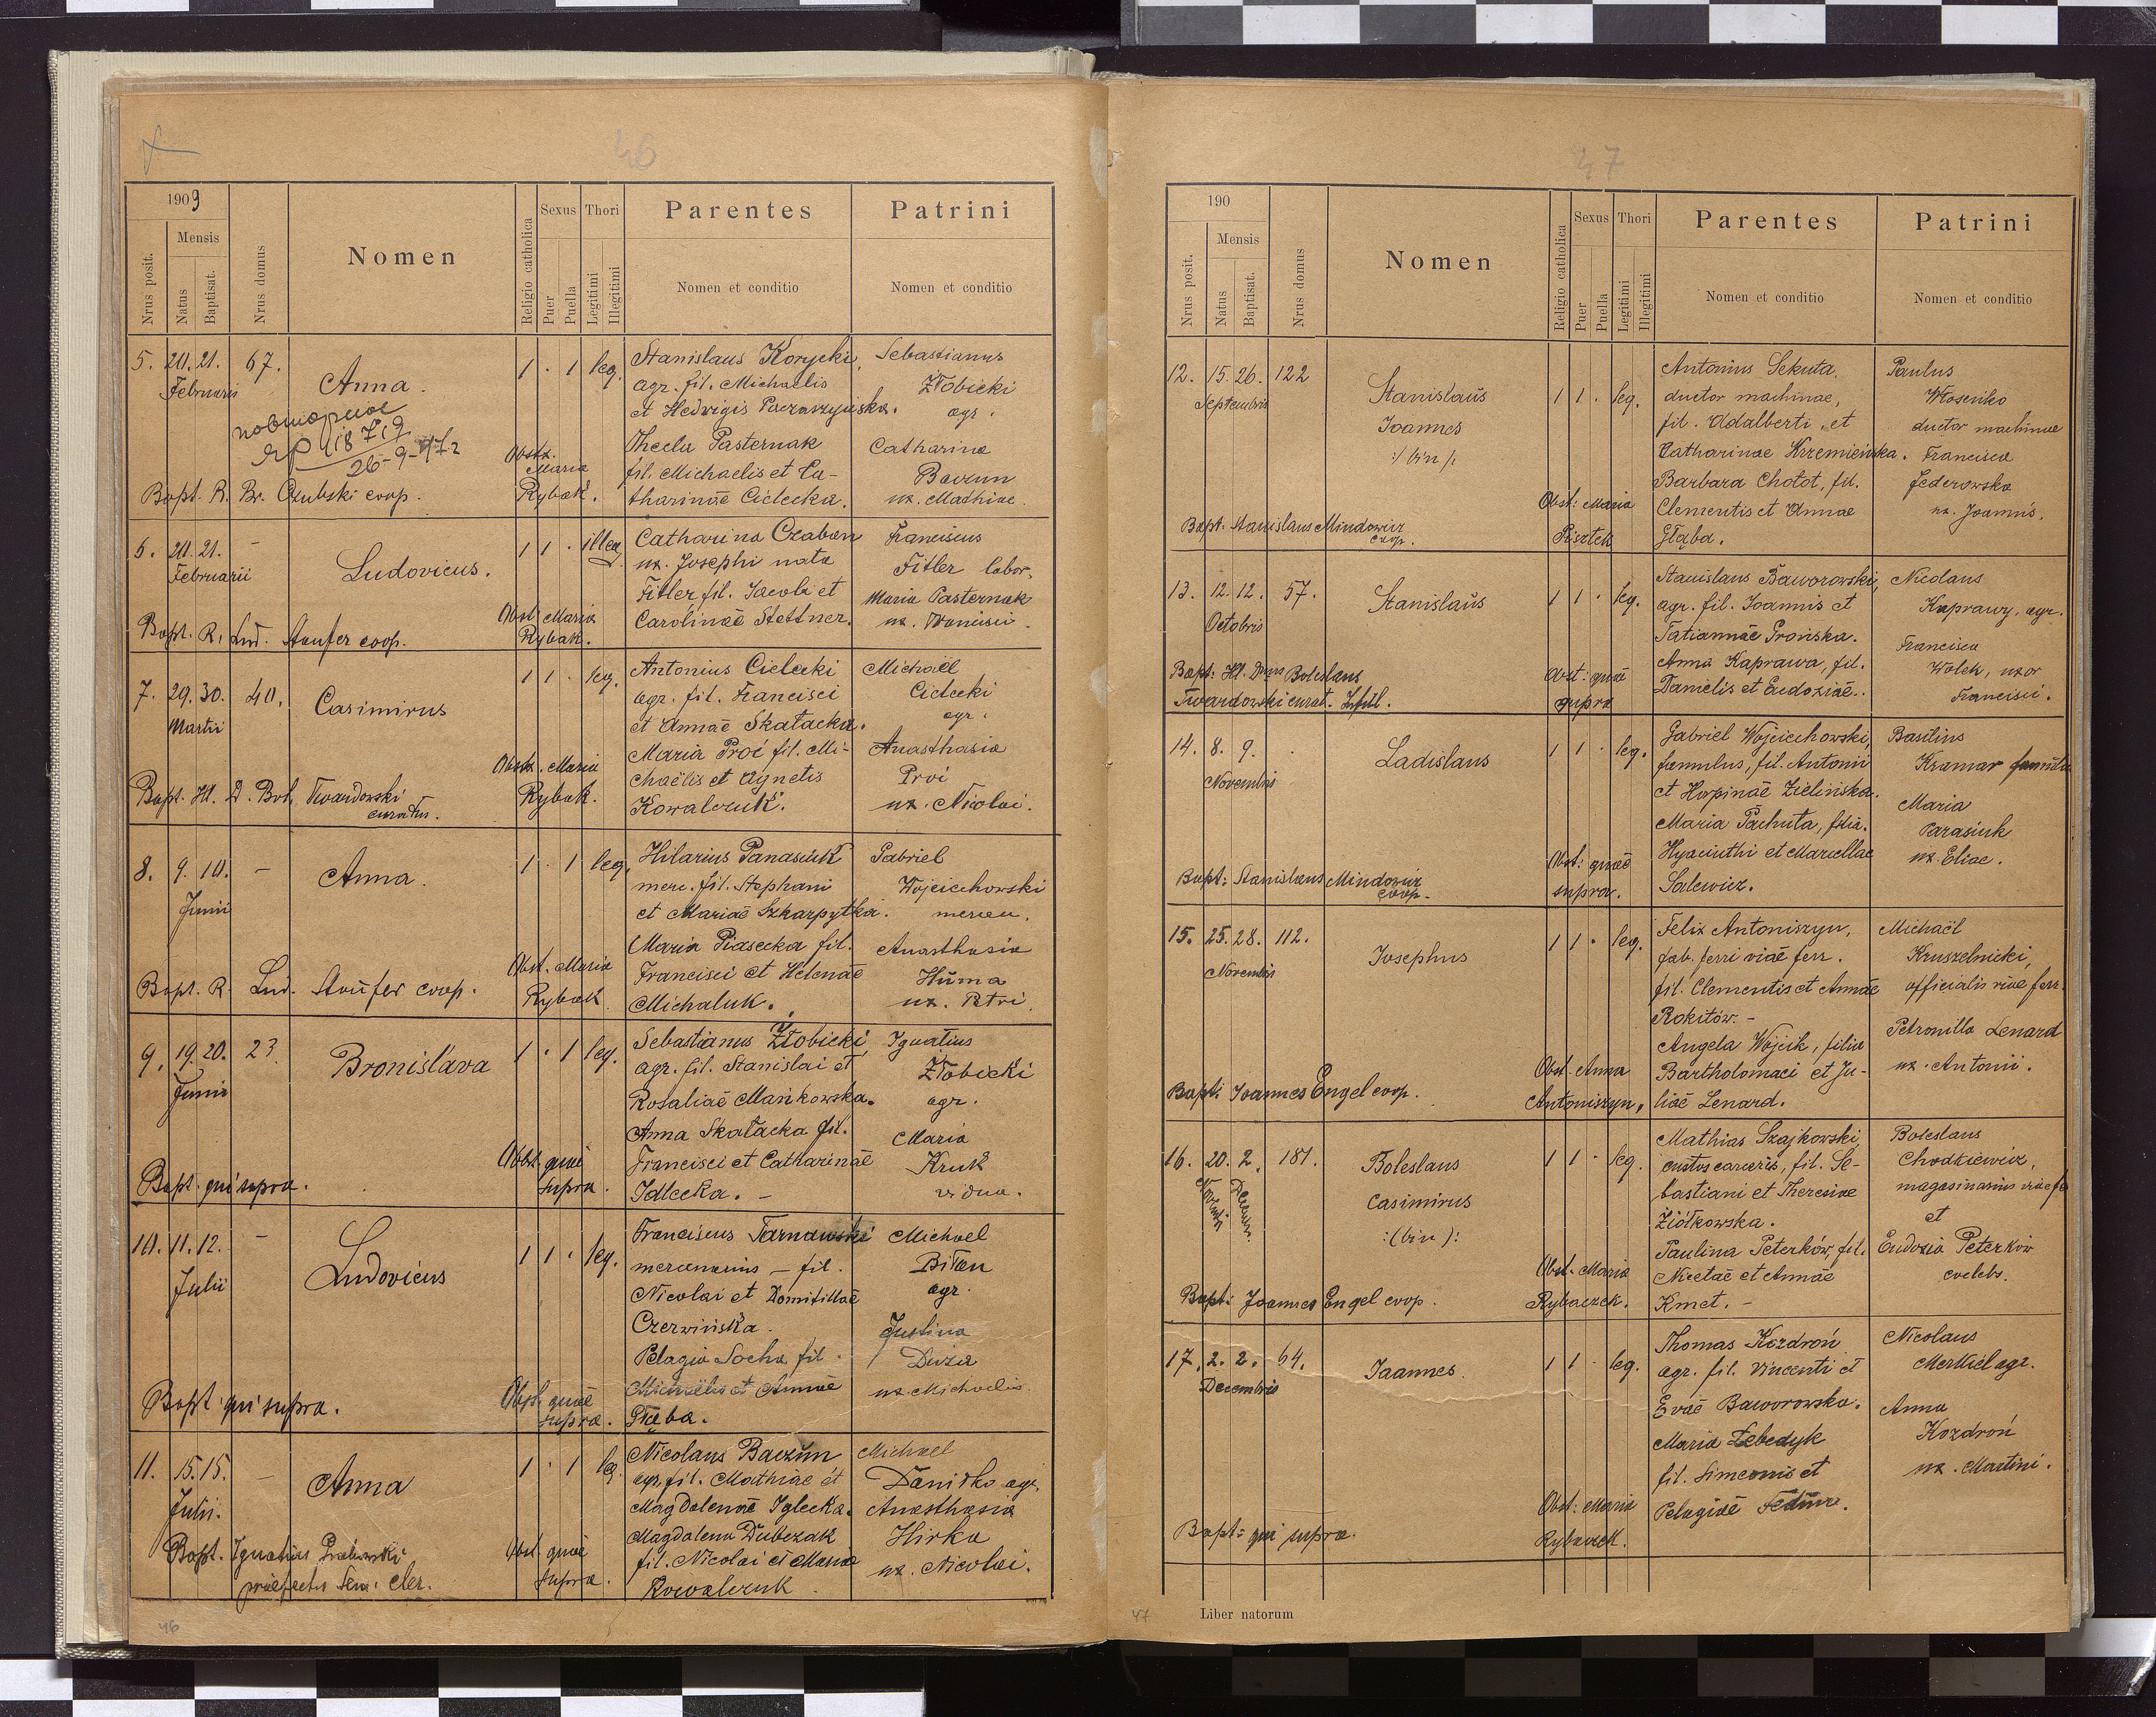 46
1909
Nrus posit.
Mensis
Natus
Baptisat.
Nrus domus
Nomen
Religio catholica
Sexus
Puer
Puella
Thori
Legitimi
Illegitimi
Parentes
Nomen et conditio
Patrini
Nomen et conditio
5. 20. 21. 67. Anna. 1 · 1 leg.
Februarii
Stanislaus Korycki,
agr. fil. Michaelis
et Hedvigis
Thecla Pasternak
fil. Michaelis et Ca-
tharinae Cielecka.
Sebastianus
Żłobicki
agr.
Catharina
Baczun
ux. Mathiae
повторное
18719
26-9-
Obstx. Maria
Rybak.
Bapt. R. Br. Czubski coop.
6. 20. 21. - Ludovicus. 1 1 · illeg.
Februarii
Catharina Czaban
ux. Josephi nata
Fitler fil. Jacobi et
Carolinae Stettner.
Franciscus
Fitler labor.
Maria Pasternak
ux. Dionisii.
Obst. Maria
Rybak.
Bapt. R. Lud. Staufer coop.
7. 29. 30. 40. Casimirus 1 1 · leg.
Martii
Antonius Cielecki
agr. fil. Francisci
et Annae Skałacka.
Maria Proć fil. Mi-
chaëlis et Agnetis
Kowalczuk.
Michaël
Cielecki
agr.
Anasthasia
Proć
ux. Nicolai.
Obstx. Maria
Rybak.
Bapt. D. Bol. Twardowski
curatus.
8. 9. 10. - Anna. 1 · 1 leg.
Junii
Hilarius Panasiuk
merc. fil. Stephani
et Mariae Szkarpytka.
Maria Piasecka fil.
Francisci et Helenae
Michaluk.
Gabriel
Wojciechowski
mercen.
Anasthasia
Huma
ux. Petri.
Obst. Maria
Rybak
Bapt. R. Lud. Staufer coop.
9. 19. 20. 23. Bronislava 1 · 1 leg.
Junii
Sebastianus Żłobicki
agr. fil. Stanislai et
Rosaliae Mańkowska.
Anna Skałacka fil.
Francisci et Catharinae
Idlecka. -
Ignatius
Żłobicki
agr.
Maria
Kruk
vidua.
Obst. quae
supra.
Bapt. qui supra.
10. 11. 12. - Ludovicus 1 1 · leg.
Julii
Franciscus Tarnawski
mercenarius - fil.
Nicolai et Domitillae
Czerwińska.
Pelagia Socha fil.
Michaëlis et Annae
Głąba.
Michael
Biłan
agr.
Justina
Duża
ux. Michaelis.
Obst. quae
supra.
Bapt. qui supra.
11. 15. 15. - Anna 1 · 1 leg.
Julii.
Nicolaus Baczun
agr. fil. Mathiae et
Magdalenae Iglecka.
Magdalena Dubczak
fil. Nicolai et Maria
Kowalczuk.
Michael
Daniłko agr.
Anasthasia
Hirka
ux. Nicolai.
Obst. quae
supra.
Bapt. Ignatius
praefectus Sem. cler.
46
47
190
Nrus posit.
Mensis
Natus
Baptisat.
Nrus domus
Nomen
Religio catholica
Sexus
Puer
Puella
Thori
Legitimi
Illegitimi
Parentes
Nomen et conditio
Patrini
Nomen et conditio
12. 15. 26. 122 Stanislaus 1 1 · leg.
Septembris
Joannes
:/ bin /:
Antonius Sekuta,
ductor machinae,
fil. Adalberti et
Catharinae Krzemieńska.
Barbara Chotot, fil.
Clementis et Annae
Głąba.
Paulus
ductor machinae
Francisca
Federowska
ux. Joannis.
Obst: Maria
Pisztek
Bapt. Stanislaus Mindowicz
coop.
13. 12. 12. 57. Stanislaus 1 1 · leg.
Octobris
Stanislaus Baworowski,
agr. fil. Joannis et
Tatiannae Prońska.
Anna Kaprawa, fil.
Danielis et Eudoxiae.
Nicolaus
Kaprawy, agr.
Francisca
Wołek, uxor
Francisci.
Obst: quae
supra
Bapt: Boleslaus
Twardowski curat.
14. 8. 9. · Ladislaus 1 1 · leg.
Novembris
Gabriel Wojciechowski,
famulus, fil. Antonii
et Horpinae Zielińska.
Maria Pachuta, filia.
Hyacinthi et Marcellae
Salewicz.
Basilius
Kramar famulus
Maria
Parasiuk
ux. Eliae.
Obst: quae
supra.
Bapt: Stanislaus Mindowicz
coop.
15. 25. 28. 112. Josephus 1 1 · leg.
Novembris
Felix Antoniszyn,
fab. ferri viae ferr.
fil. Clementis et Annae
Rokitów. -
Angela Wójcik, filia
Bartholomaei et Ju-
liae Lenard.
Michaël
Kruszelnicki,
officialis viae ferr.
Petronilla Lenard
ux. Antonii.
Obst. Anna
Antoniszyn.
Bapt: Joannes Engel coop.
16. 20. 2. 181. Boleslaus 1 1 · leg.
Casimirus
:(bin):
Mathias Szajkowski,
custos carceris, fil. Se-
bastiani et Theresiae
Ziółkowska.
Paulina Peterków, fil.
Nicetae et Annae
Kmet. -
Boleslaus
Chodkiewicz,
magasinarius viae fe
et
Eudoxia Peterków
coelebs.
Obst. Maria
Rybaczek.
Bapt: Joannes Engel coop.
17. 2. 2. 64. Joannes. 1 1 · leg.
Decembris
Thomas Kozdroń
agr. fil. Vincenti et
Evae Baworowska.
Maria Lebedyk
fil. Simeonis et
Pelagiae
Nicolaus
Merkiel agr.
Anna
Kozdroń
ux. Martini.
Obst: Maria
Rybaczek.
Bapt: qui supra.
47
Liber natorum